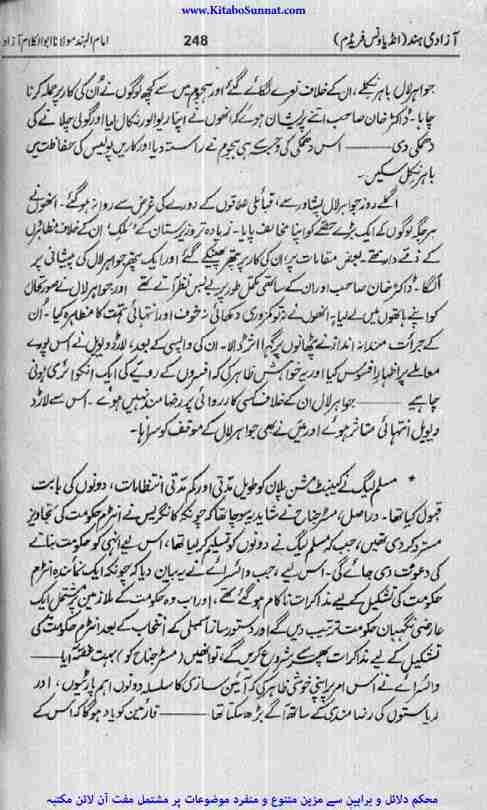 www.KitaboSunnat.com
آزادی ہند (انڈیا ونس فریڈم)
248
امام الہند مولانا ابوالکلام آزاد
جواہر لال باہر نکلے، ان کے خلاف نعرے لگائے گئے اور ہجوم میں سے کچھ لوگوں نے اُن کی کار پر حملہ کرنا
چاہا۔ ڈاکٹر خان صاحب اتنے پریشان ہوئے کہ انھوں نے اپنا ریوالور نکال لیا اور گولی چلانے کی
دھمکی دی ــــــ اس دھمکی کی وجہ سے ہی ہجوم نے راستہ دیا اور کاریں پولیس کی حفاظت میں
باہر نکل سکیں۔
اگلے روز جواہر لال پشاور سے، قبائلی علاقوں کے دورے کی غرض سے روانہ ہو گئے۔ انھوں نے
ہر جگہ لوگوں کے ایک بڑے حلقے کو اپنا مخالف پایا۔ زیادہ تر وزیرستان کے 'ملک' ان کے خلاف مظاہروں
کے ذمے دار تھے۔ بعض مقامات پر ان کی کار پر پتھر پھینکے گئے اور ایک پتھر جواہر لال کی پیشانی پر
آلگا۔ ڈاکٹر خان صاحب اور ان کے ساتھی مکمل طور پر بے بس نظر آتے تھے اور جواہر لال نے صورتحال
کو اپنے ہاتھوں میں لے لیا۔ انھوں نے نہ تو کمزوری دکھائی نہ خوف اور انتہائی ہمت کا مظاہرہ کیا۔ اُن
کے جرأت مندانہ انداز نے پٹھانوں پر گہرا اثر ڈالا۔ ان کی واپسی کے بعد، لارڈ ویول نے اس پورے
معاملے پر اظہار افسوس کیا اور یہ خواہش ظاہر کی کہ افسروں کے رویے کی ایک انکوائری ہونی
چاہیے ــــــ جواہر لال ان کے خلاف کسی کارروائی پر رضامند نہیں ہوے۔ اس سے لارڈ
ویول انتہائی متاثر ہوے اور میں نے بھی جواہر لال کے موقف کو سراہا۔
* مسلم لیگ نے کیبینٹ مشن پلان کو طویل مدتی اور کم مدتی انتظامات، دونوں کی بابت
قبول کیا تھا۔ دراصل، مسٹر جناح نے شاید یہ سوچا تھا کہ چونکہ کانگریس نے انٹرم حکومت کی تجاویز
مسترد کر دی تھیں، جب کہ مسلم لیگ نے دونوں کو تسلیم کر لیا تھا، اس لیے انہی کو حکومت بنانے
کی دعوت دی جائے گی۔ اس لیے، جب وائسرائے نے یہ بیان دیا کہ چونکہ ایک نمائندہ انٹرم
حکومت کی تشکیل کے لیے مذاکرات ناکام ہو گئے تھے، اور اب وہ حکومت کے ملازمین پر مشتمل ایک
عارضی نگہبان حکومت ترتیب دیں گے اور دستور ساز اسمبلی کے انتخاب کے بعد انٹرم حکومت کی
تشکیل کے لیے مذاکرات پھر سے شروع کریں گے، تو انھیں (مسٹر جناح کو) بہت غصہ آیا ــــــ
وائسرائے نے اس امر پر اپنی خوشی ظاہر کی کہ آئین سازی کا سلسلہ دونوں اہم پارٹیوں، اور
ریاستوں کی رضامندی کے ساتھ آگے بڑھ سکتا تھا ــــــ قارئین کو یاد ہو گا کہ اس کے
محکم دلائل و براہین سے مزین متنوع و منفرد موضوعات پر مشتمل مفت آن لائن مکتبہ